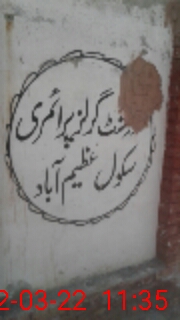 گرلز پرائمری
سکول عظیم آباد
2-03-22 11:35